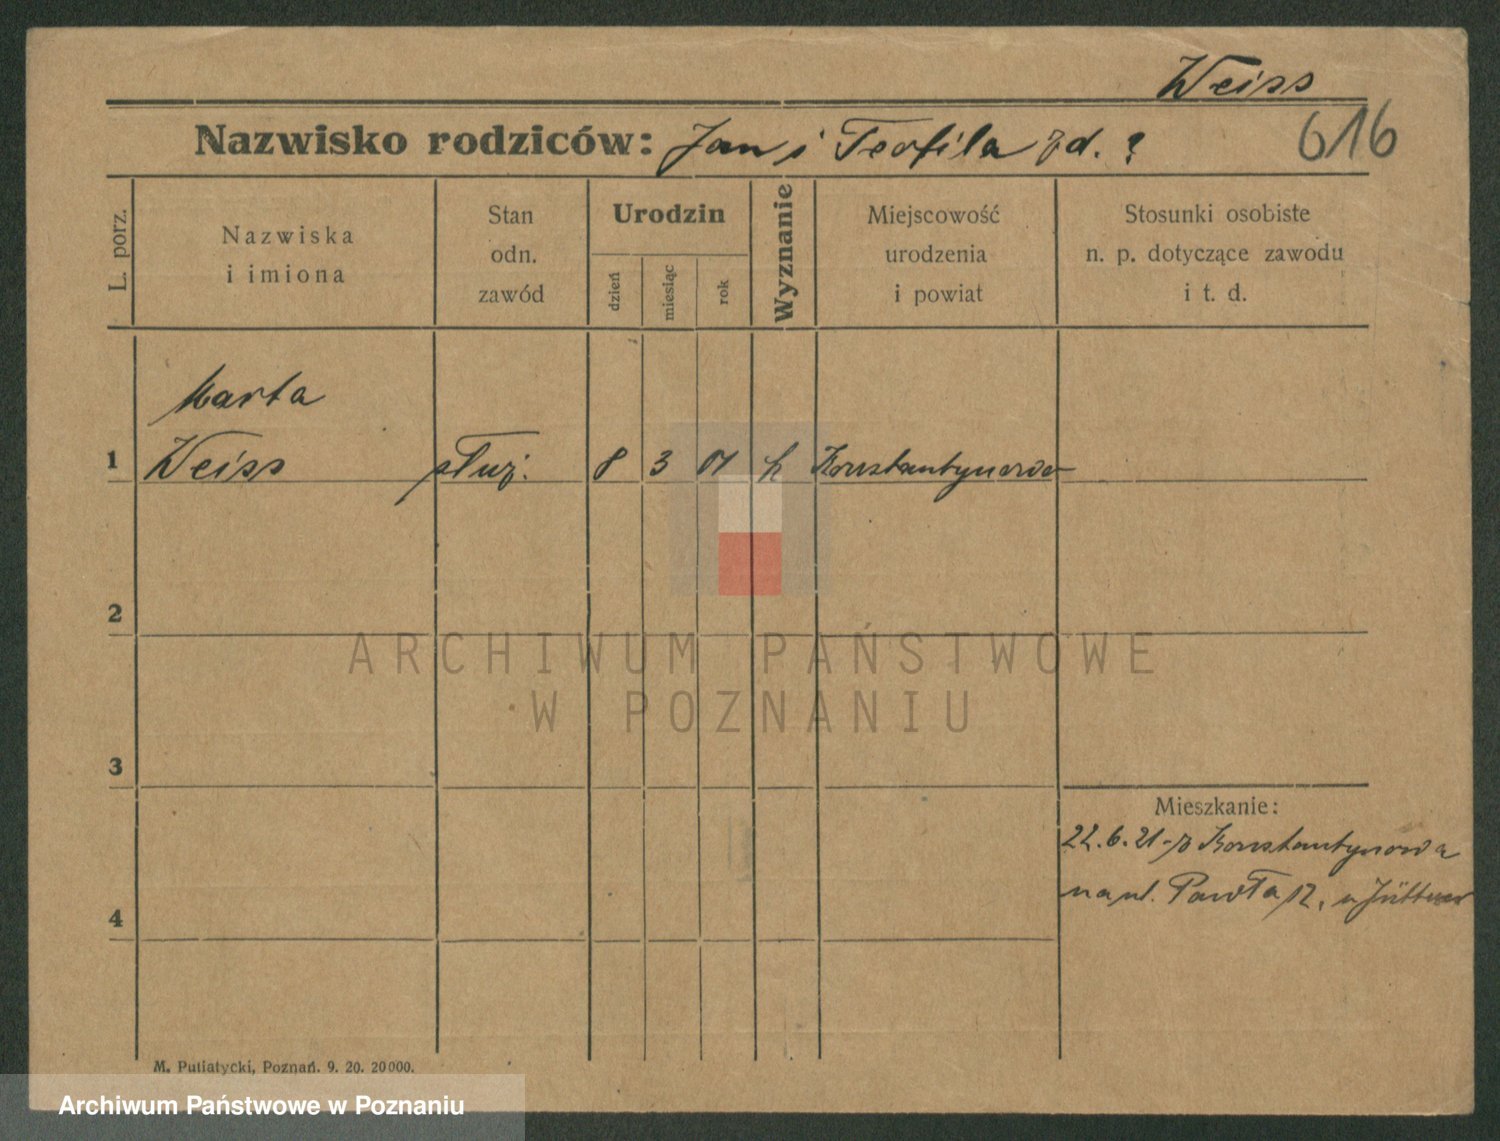 Weiss
616
Nazwisko rodziców: Jan i Teofila zd. ?
L. porz.
Nazwiska
i imiona
Stan
odn.
zawód
Urodzin
dzień
miesiąc
rok
Wyznanie
Miejscowość
urodzenia
i powiat
Stosunki osobiste
n. p. dotyczące zawodu
i t. d.
Marta
1 Weiss służ. 8 3 01 k Konstantynowo
2
ARCHIWUM PAŃSTWOWE
W POZNANIU
3
Mieszkanie:
22.6.21 z Konstantynowa
na ul. Pawła 12, u Jüttner
4
M. Putiatycki, Poznań. 9. 20. 20000.
Archiwum Państwowe w Poznaniu